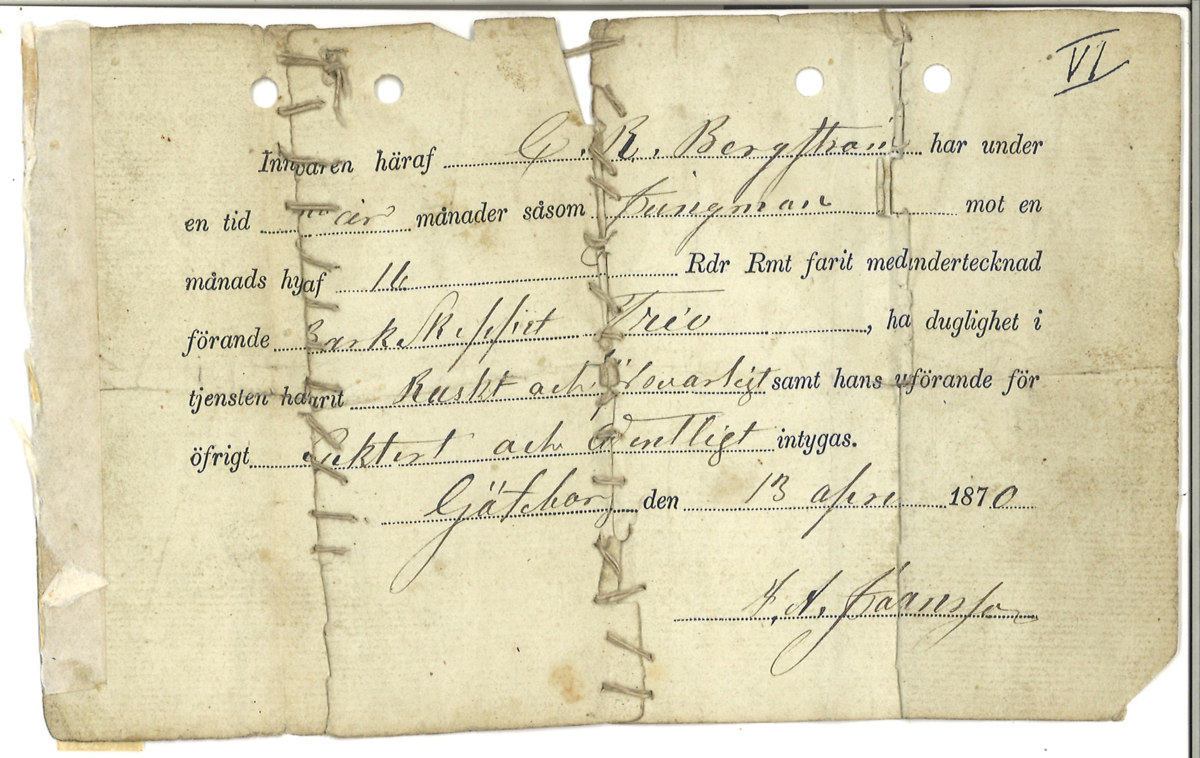 VI
Innvaren häraf C. R. Bergström har under
en tid år månader såsom Jungman mot en
månads hyaf 16 Rdr Rmt farit medundertecknad
förande Bark Skeppet Trio, ha duglighet i
tjensten hafarit Raskt och samt hans uförande för
öfrigt och Ordentligt intygas.
Götebor den 13 apri 1870